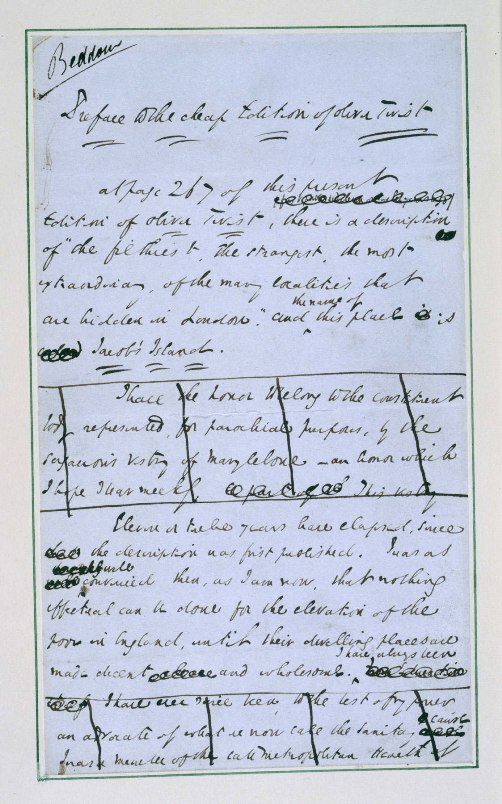 Beddow
Preface to the cheap Edition of Oliver Twist
At page 267 of this present
Edition of Oliver Twist, there is a description
of "the filthiest, the strangest, the most
extraordinary, of the many localities that
are hidden in London." And the name of this place is
Jacob's Island.
I have the honor to belong to the constituent
body represented, for parochial purposes, by the
sagacious vestry of Marylebone — an honor which
I hope I bear meekly. This vestry
Eleven or twelve years have elapsed, since
the description was first published. I was as
convinced then, as I am now, that nothing
effectual can be done for the elevation of the
poor in England, until their dwelling places are
made decent and wholesome. I have always been
I have ever since been, to the best of my power
an advocate of what we now call the sanitary cause
I was a member of the late Metropolitan Health of